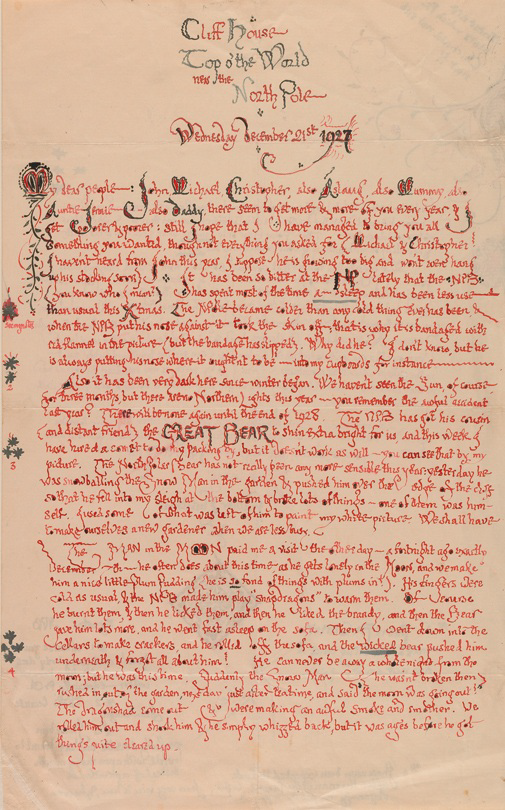 Cliff House
Top o' the World
near the
North Pole
Wednesday December 21st 1927
My dear people: John, Michael, Christopher, also Aslaug, also Mummy, also
Auntie Jennie, also Daddy, there seem to get more & more of you every year. & I
get poorer & poorer: still I hope that I have managed to bring you all
something you wanted, though not everything you asked for (Michael & Christopher!
I haven't heard from John this year. I suppose he is growing too big and won't even hang
up his stocking soon). It has been so bitter at the NP lately that the NPB
(You know who I mean!) has spent most of the time asleep and has been less use
than usual this Xmas. The N Pole became colder than any cold thing ever has been
when the NPB put his nose against it - it took the skin off: that is why it is bandaged with
red flannel in the picture (but the bandage has slipped). Why did he? I don't know, but he
is always putting his nose where it ought not to be — into my cupboards for instance
Also it has been very dark here since winter began. We haven't seen the Sun, of course
for three months but there are no Northern Lights this year — you remember the awful accident
last year? There will be none again until the end of 1928. The NPB has got his cousin
(and distant friend) the GREAT BEAR to shine extra bright for us, and this week I
have hired a comet to do my packing by, but it doesn't work as well — you can see that by my
picture. The North Polar Bear has not really been any more sensible this year: yesterday he
was snowballing the Snow Man in the garden & pushed him over the edge of the cliff
so that he fell into my sleigh at the bottom & broke lots of things — one of them was him-
self. I used some of what was left of him to paint my white picture. We shall have
to make ourselves a new gardener when we are less busy.
The MAN in the MOON paid me a visit the other day — a fortnight ago exactly
December 7th — he often does about this time, as he gets lonely in the Moon, and we make
him a nice little Plum Pudding (he is so fond of things with plums in!). His fingers were
cold as usual & the NPB made him play "snapdragons" to warm them. Of course
he burnt them, & then he licked them, and then he liked the brandy, and then the Bear
gave him lots more, and he went fast asleep on the sofa. Then I went down into the
cellars to make crackers, and he rolled off the sofa, and the wicked bear pushed him
underneath & forgot all about him! He can never be away a whole night from the
moon; but he was this time. Suddenly the Snow Man (he wasn't broken then)
rushed in out of the garden, next day just after teatime, and said the moon was going out!
The dragons had come out & were making an awful smoke and smother. We
rolled him out and shook him & he simply whizzed back, but it was ages before he got
things quite cleared up.
see my note
2
3
4